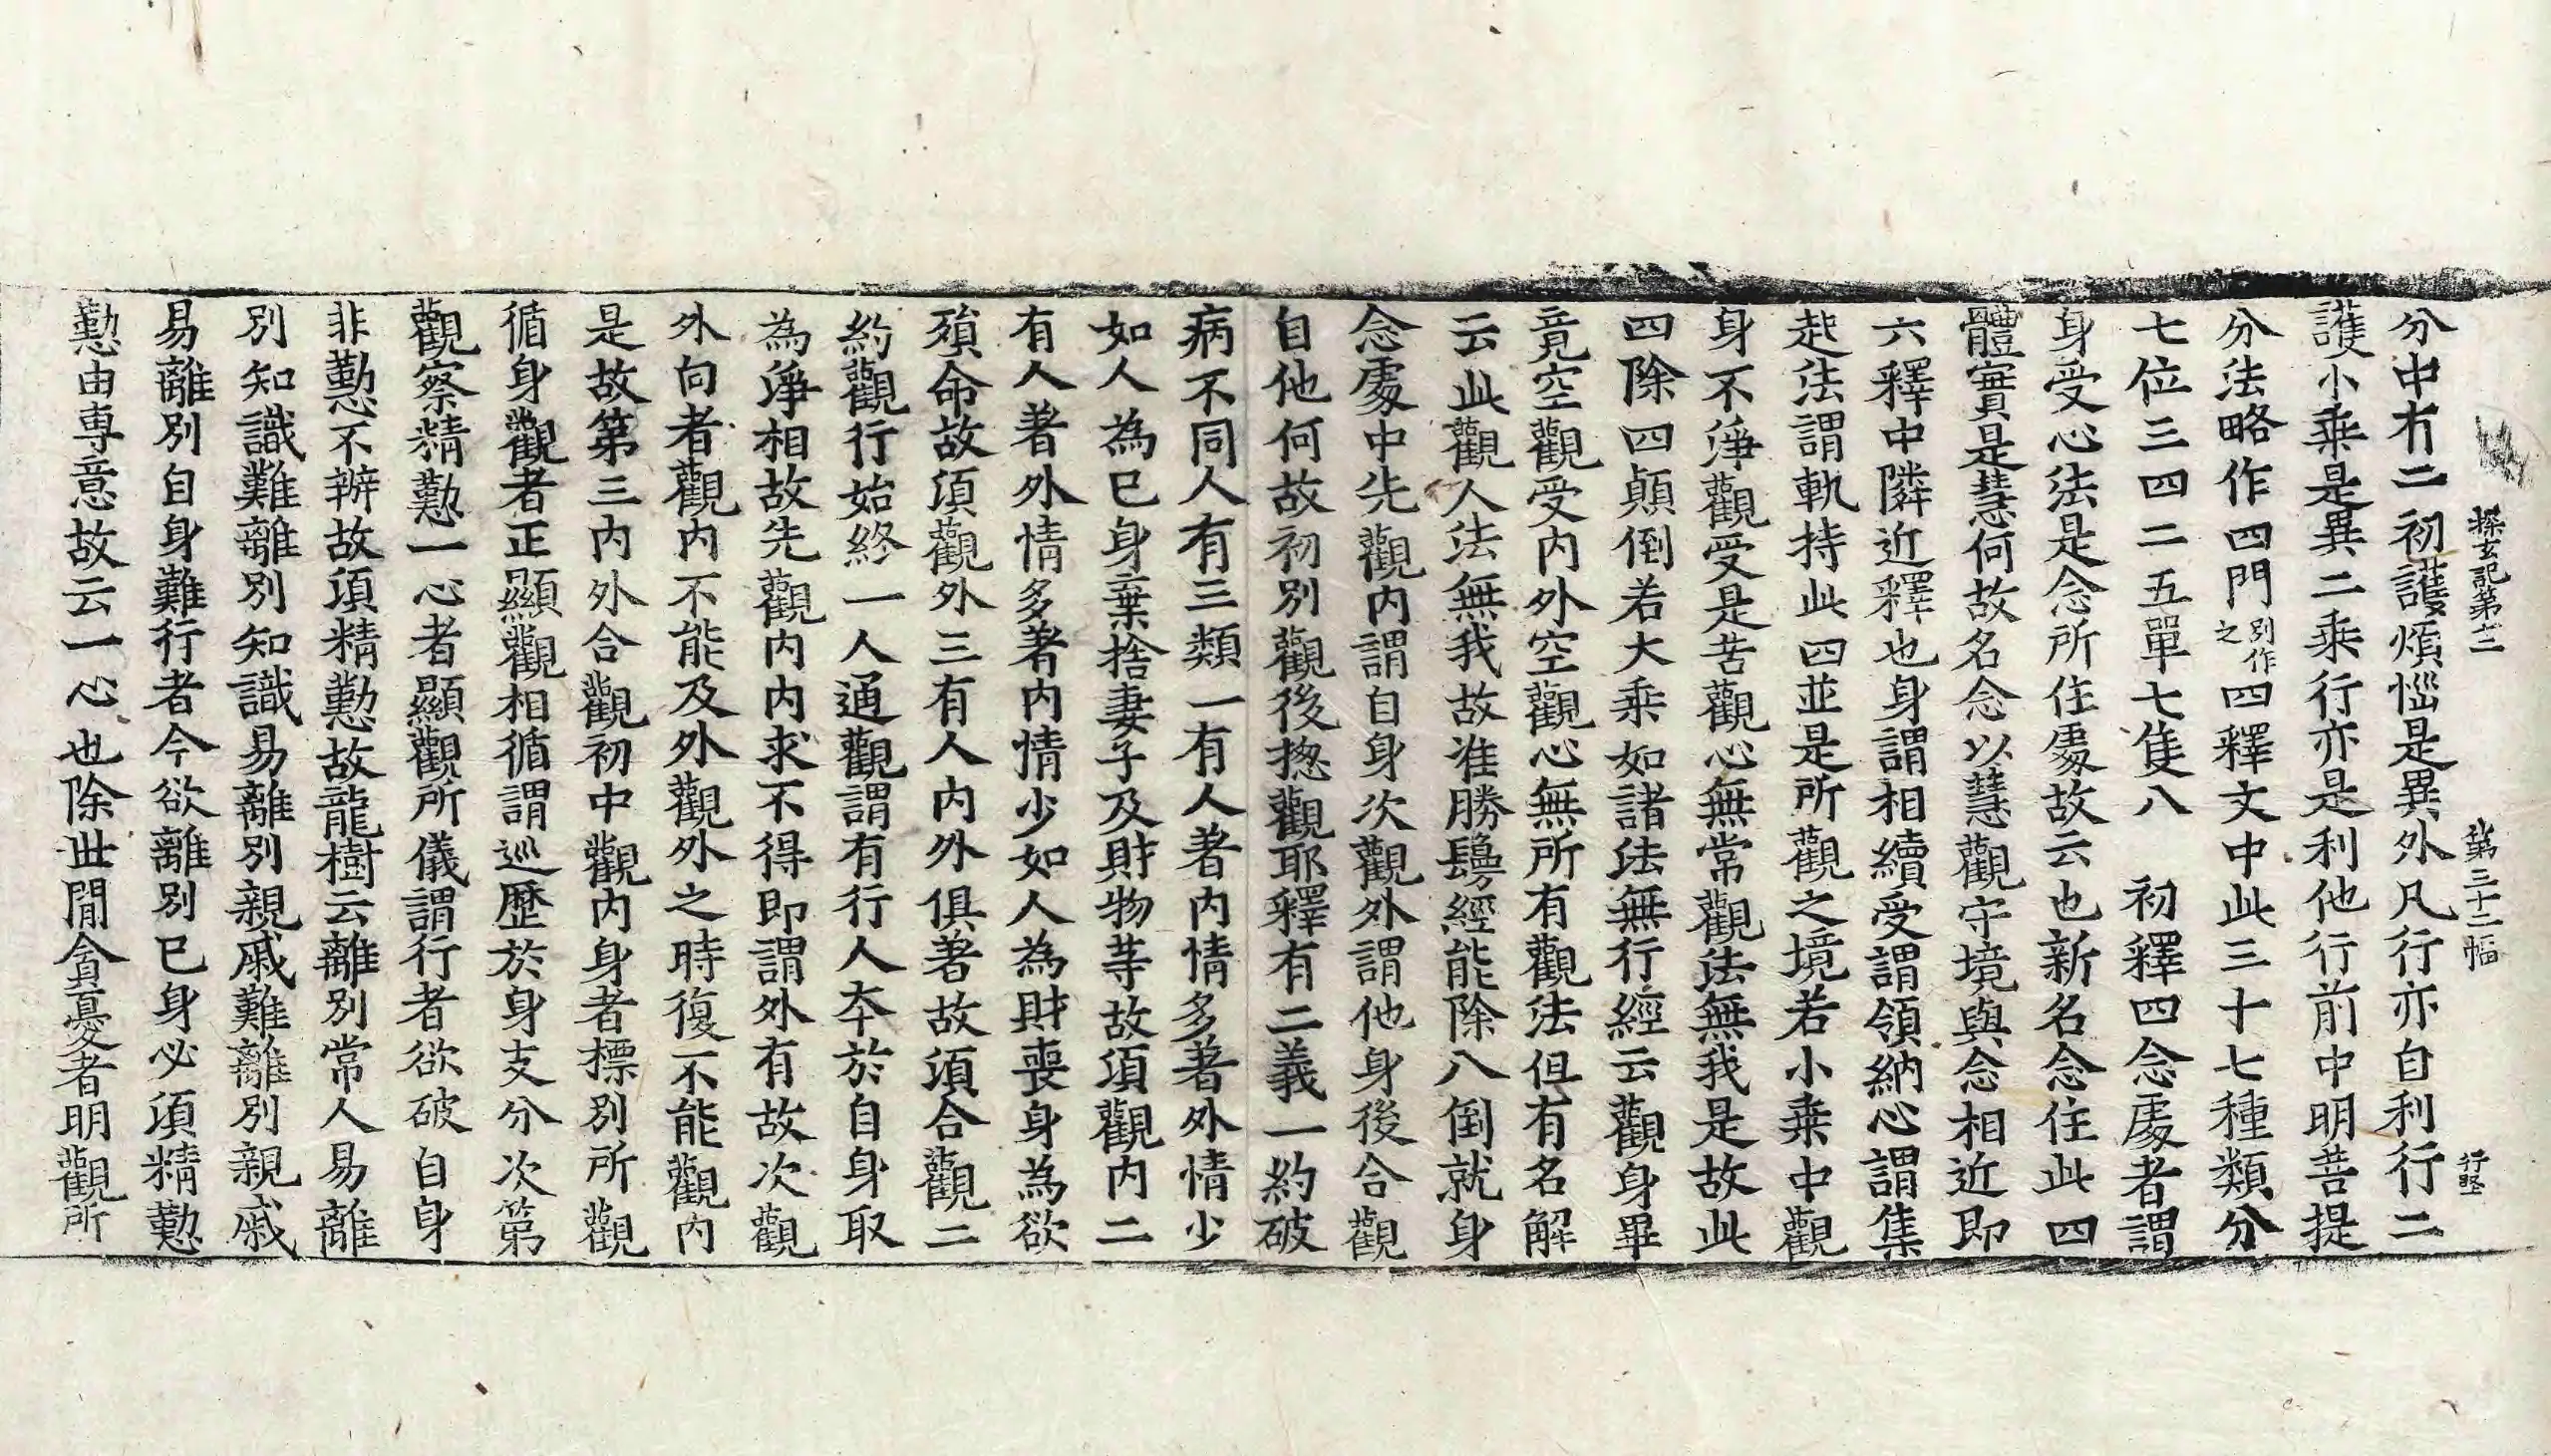 探玄記第十二　第三十二幅　行堅
分中有二初護煩惱是異外凡行亦自利行二
護小乘是異二乘行亦是利他行前中明菩提
分法略作四門別作之四釋文中此三十七種類分
七位三四二五單七隻八　初釋四念處者謂
身受心法是念所住處故云也新名念住此四
體實是慧何故名念以慧觀守境與念相近即
六釋中隣近釋也身謂相續受謂領納心謂集
起法謂軌持此四並是所觀之境若小乗中觀
身不淨觀受是苦觀心無常觀法無我是故此
四除四顛倒若大乘如諸法無行經云觀身畢
竟空觀受內外空觀心無所有觀法但有名解
云此觀人法無我故准勝鬘經能除八倒就身
念處中先觀內謂自身次觀外謂他身後合觀
自他何故初別觀後揔觀耶釋有二義一約破
病不同人有三類一有人著內情多著外情少
如人為已身棄捨妻子及財物等故須觀內二
有人著外情多著內情少如人為財喪身為欲
殞命故須觀外三有人內外俱著故須合觀二
約觀行始終一人通觀謂有行人夲於自身取
為淨相故先觀內內求不得即謂外有故次觀
外向者觀內不能及外觀外之時復不能觀內
是故第三內外合觀初中觀內身者標別所觀
循身觀者正顯觀相循謂巡歷於身支分次第
觀察精懃一心者顯觀所儀謂行者欲破自身
非懃不辦故須精懃故龍樹云離別常人易離
別知識難離別知識易離別親戚難離別親戚
易離別自身難行者今欲離別已身必須精懃
懃由専意故云一心也除世間貪憂者明觀所